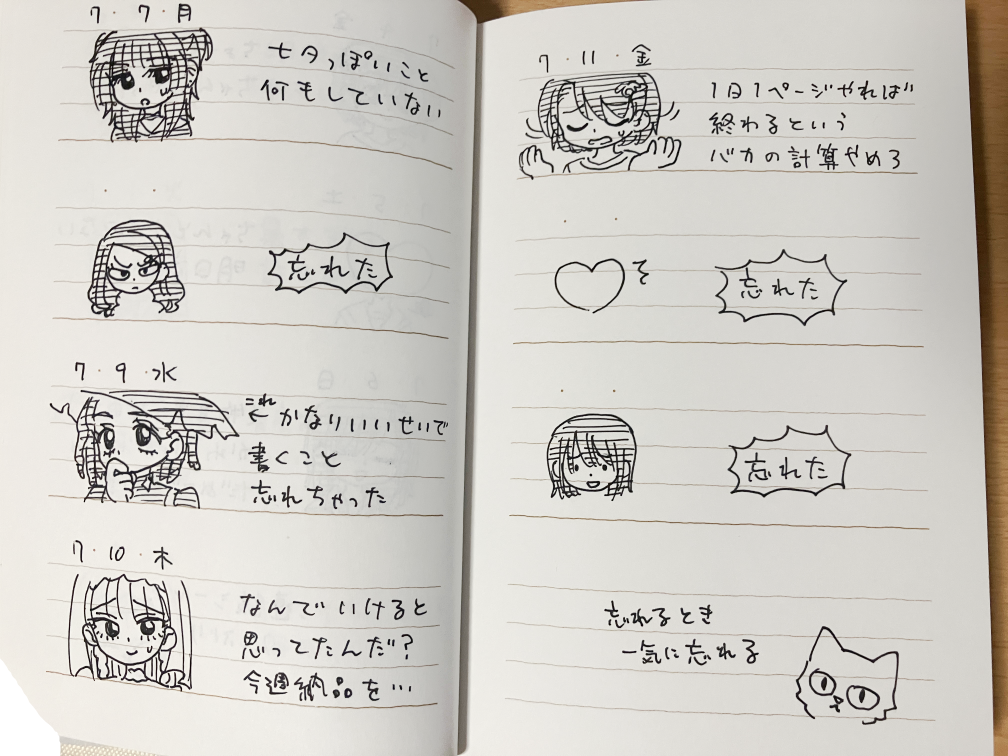 7・7・月
七夕っぽいこと
何もしていない
忘れた
7・9・水
これ
←かなりいいせいで
書くこと
忘れちゃった
7・10・木
なんでいけると
思ってたんだ?
今週納品を…
7・11・金
1日1ページやれば
終わるという
バカの計算やめろ
忘れた
忘れた
忘れるとき
一気に忘れる